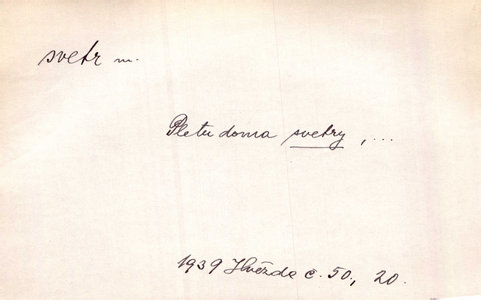 svetr m.
Pletu doma svetry, ...
1939 Hvězda č. 50., 20.